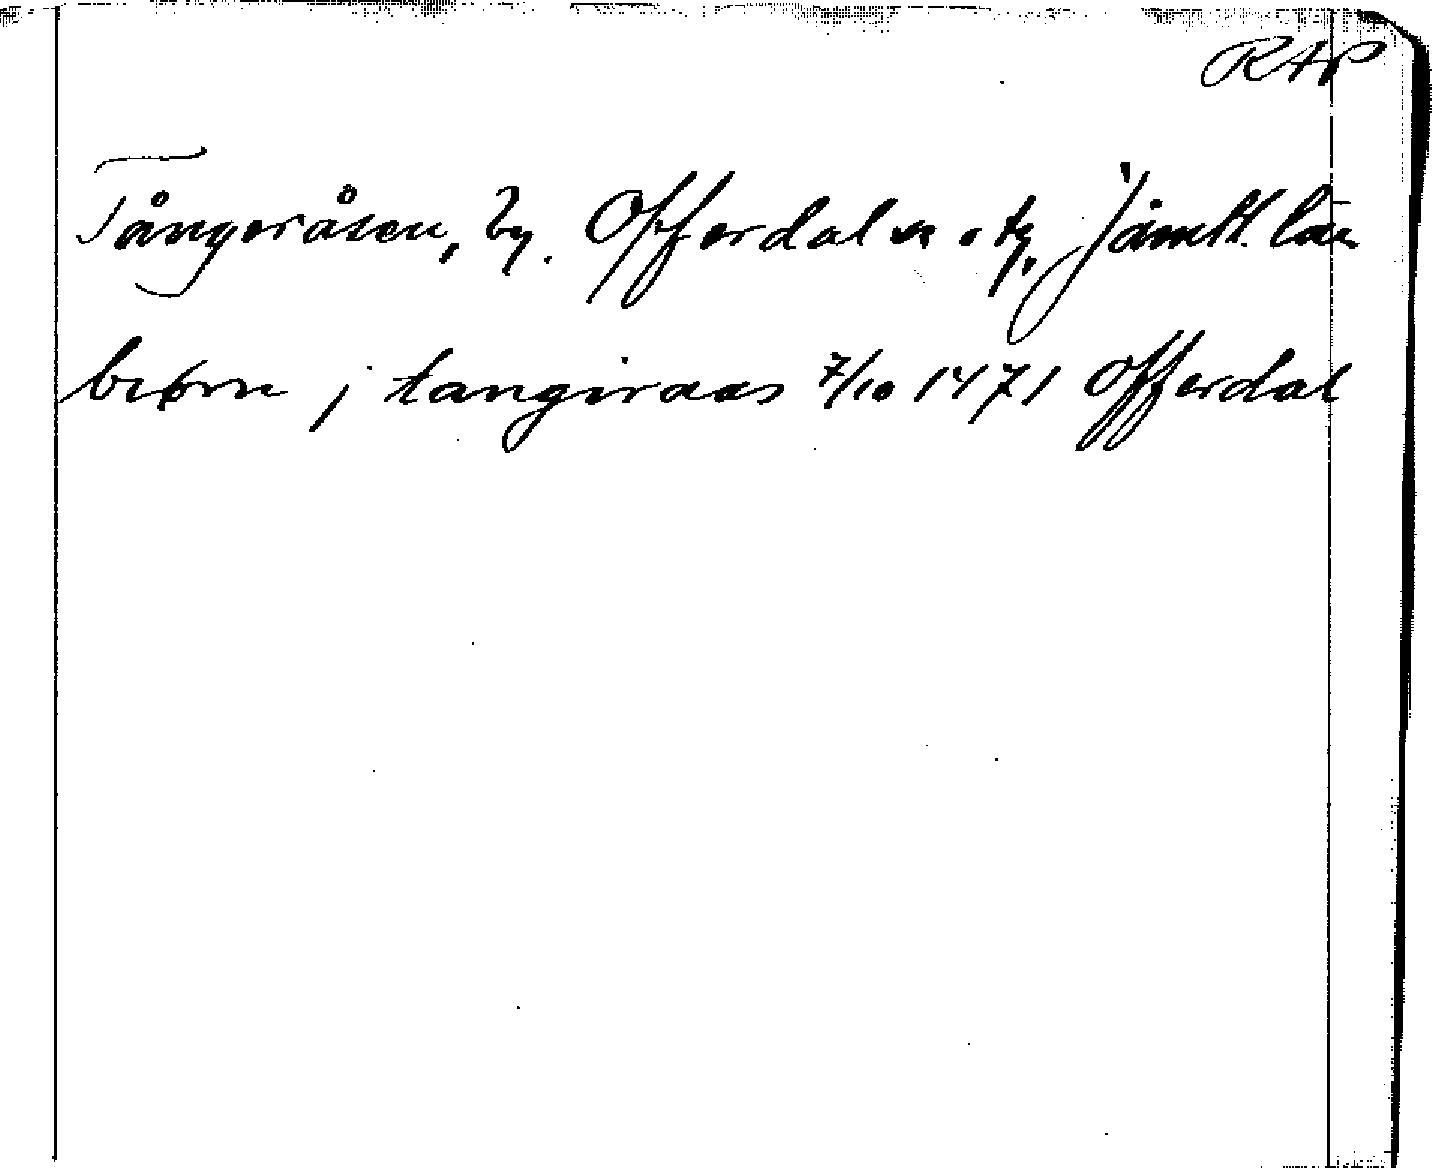 RAP
Tångeråsen, by. Offerdal sn o tg. Jämtl. län
biørn j tangiraas 7/10 1471 Offerdal